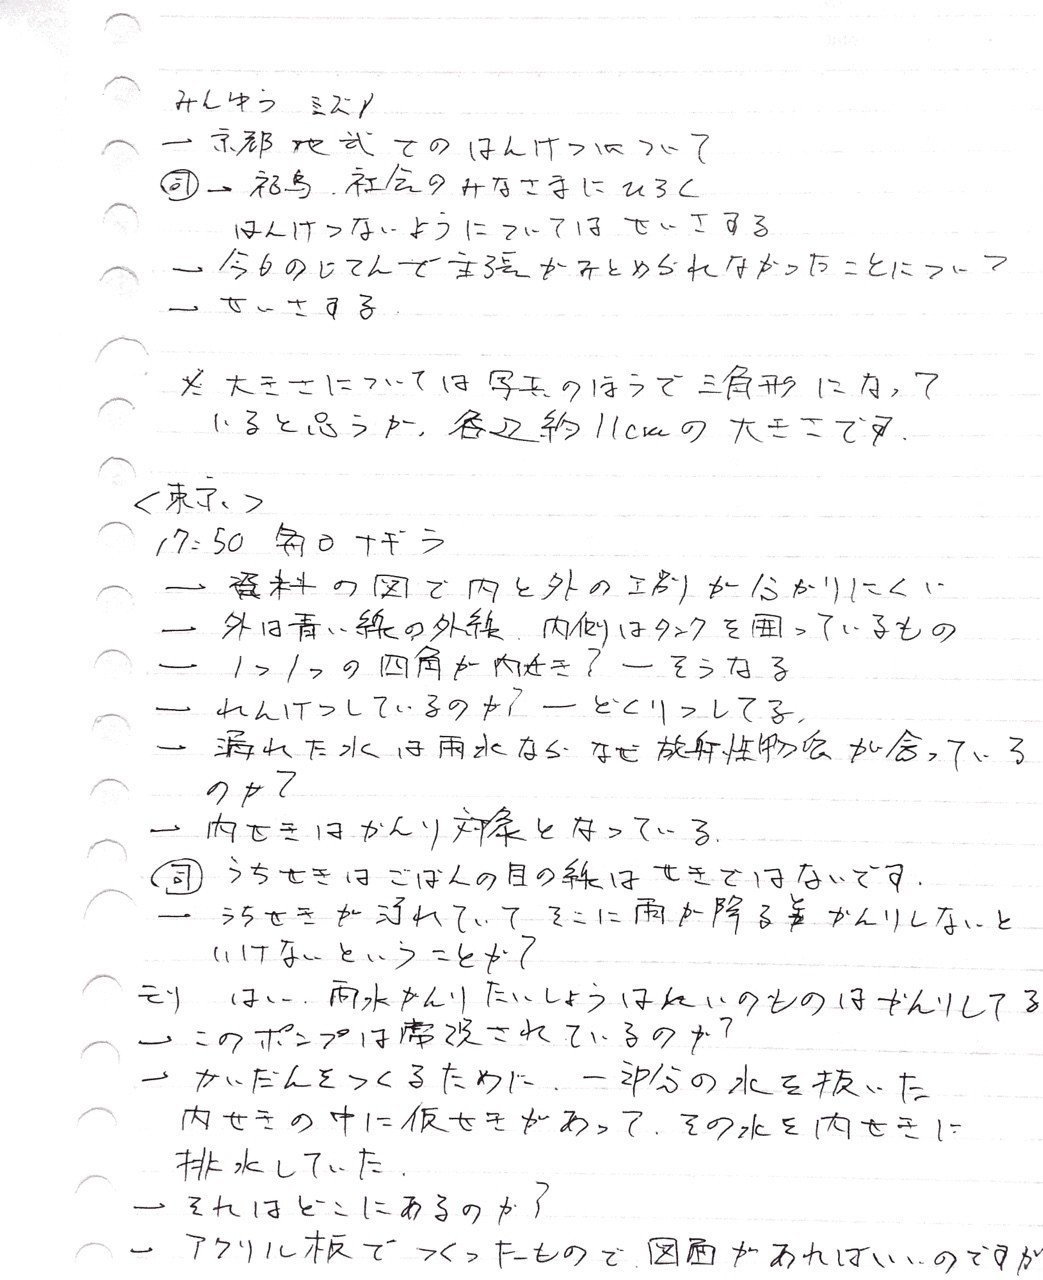 みんゆう ミズノ
→ 京都地武でのはんけつについて
㊂→ 福島、社会のみなさまにひろく
はんけつないようについてはせいさする
→ 今日のじてんで主張がみとめられなかったことについて
→ せいさする
※ 大きさについては写真のほうで三角形になって
いると思うが、各辺約11cmの大きさです。
<東京、>
17:50 毎日ナギラ
→ 資料の図で内と外の区別が分かりにくい
→ 外は青い線の外線、内側はタンクを囲っているもの
→ 1つ1つの四角が内せき? → そうなる
→ れんけつしているのか? → どくりつしてる、
→ 漏れた水は雨水ならなぜ放射性物質が含っている
のか?
→ 内せきはかんり対象となっている。
うちせきはごばんの目の線はせきではないです。
→ うちせきが汚れていてそこに雨が降る かんりしないと
いけないということか?
モリ はい、雨水かんりたいしょうはんいのものはかんりしてる
→ このポンプは常設されているのか?
→ かいだんをつくるために、一部分の水を抜いた
内せきの中に仮せきがあって、その水を内せきに
排水していた。
→ それはどこにあるのか?
→ アクリル板でつくったもので図面があればいいのですが